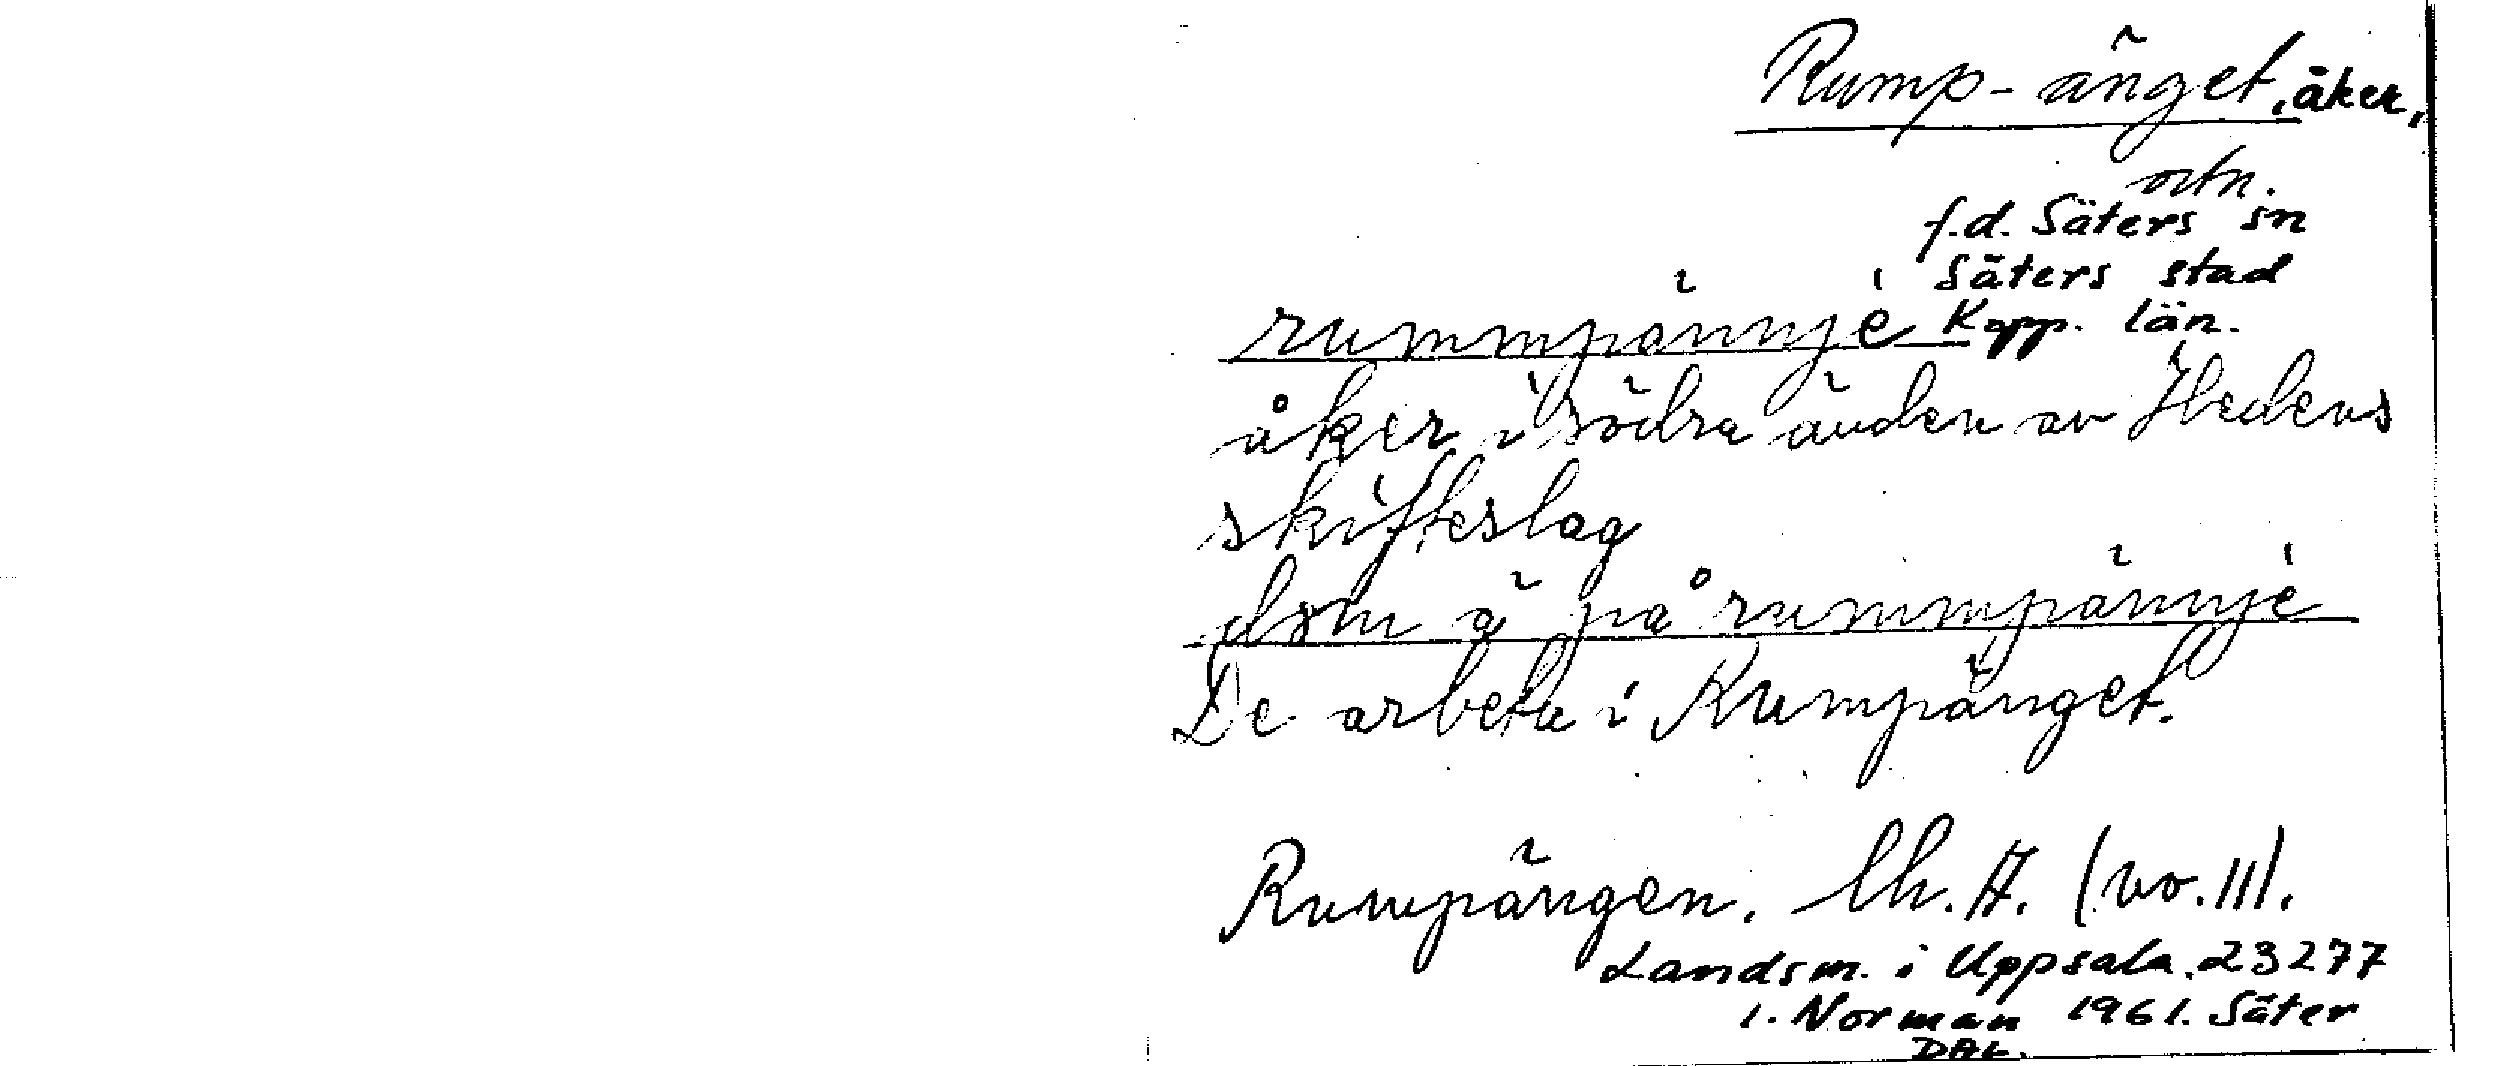 Rump-änget, åker,
ortn.
f.d. Säters sn
Säters stad
Kopp. län.
rummpännjé
åker i södra änden av Hedens
skifteslag
dom ä på rummpännjé
De arbeta i Rumpänget.
Rumpängen. lh. A. (vo. III).
Landsm. i Uppsala. 23277
I. Norman 1961. Säter
DAL.